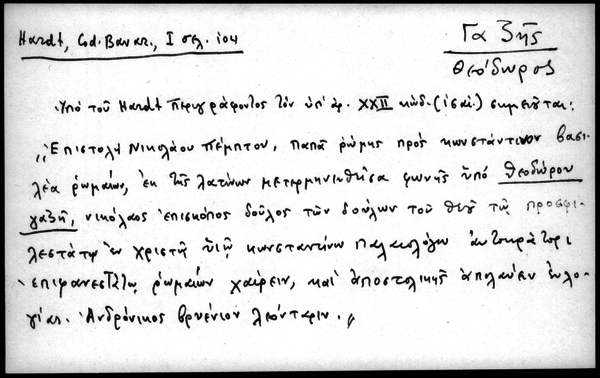 Hardt, Cod. Bavar., I σελ. 104
Γαζῆς
Θεόδωρος
Ὑπὸ τοῦ Hardt περιγράφοντος τὸν ὑπ' ἀρ. XXII κώδ. σημειοῦται:
„Ἐπιστολὴ Νικολάου πέμπτου, παπᾶ ῥώμης πρὸς κωνσταντῖνον βασι-
λέα ῥωμαίων, ἐκ τῆς λατίνων μετερμηνευθεῖσα φωνῆς ὑπὸ θεοδώρου
γαζῆ, νικόλαος ἐπίσκοπος δοῦλος τῶν δούλων τοῦ θεοῦ τῷ προσφι-
λεστάτῳ ἐν χριστῷ υἱῷ κωνσταντίνῳ παλαιολόγῳ αὐτοκράτορι
ἐπιφανεστάτῳ ῥωμαίων χαίρειν, καὶ ἀποστολικῆς ἀπολαύειν εὐλο-
γίας. Ἀνδρόνικος βρυένιον λεόνταριν."